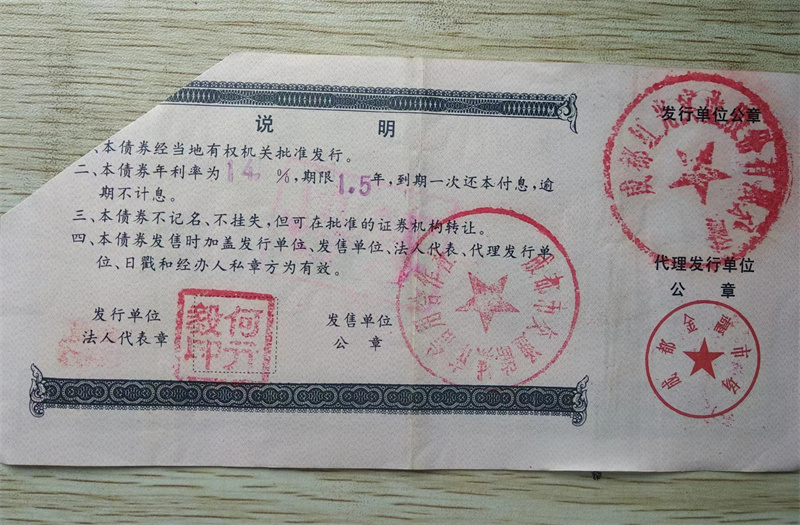 说 明
、本债券经当地有权机关批准发行。
二、本债券年利率为14%,期限1.5年,到期一次还本付息,逾
期不计息。
三、本债券不记名、不挂失,但可在批准的证券机构转让。
四、本债券发售时加盖发行单位、发售单位、法人代表、代理发行单
位、日戳和经办人私章方为有效。
发行单位
法人代表章
发售单位
公 章
发行单位公章
代理发行单位
公 章
成都金融市场